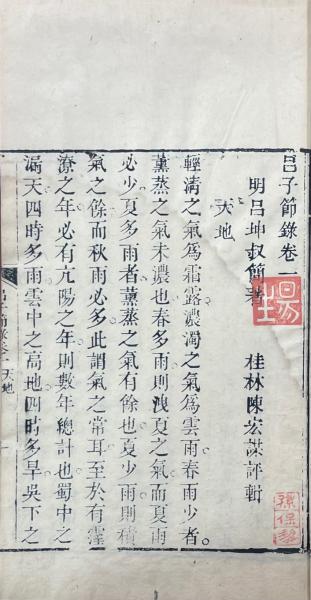 呂子節錄卷一
明呂坤叔簡著 桂林陳宏謀評輯
天地
輕清之氣爲霜露濃濁之氣爲雲雨春雨少者
薰蒸之氣未濃也春多雨則洩夏之氣而夏雨
必少夏多雨者薰蒸之氣有餘也夏少雨則積
氣之餘而秋雨必多此謂氣之常耳至於有霪
潦之年必有亢陽之年則數年總計也蜀中之
漏天四時多雨雲中之高地四時多旱吳下之
天地